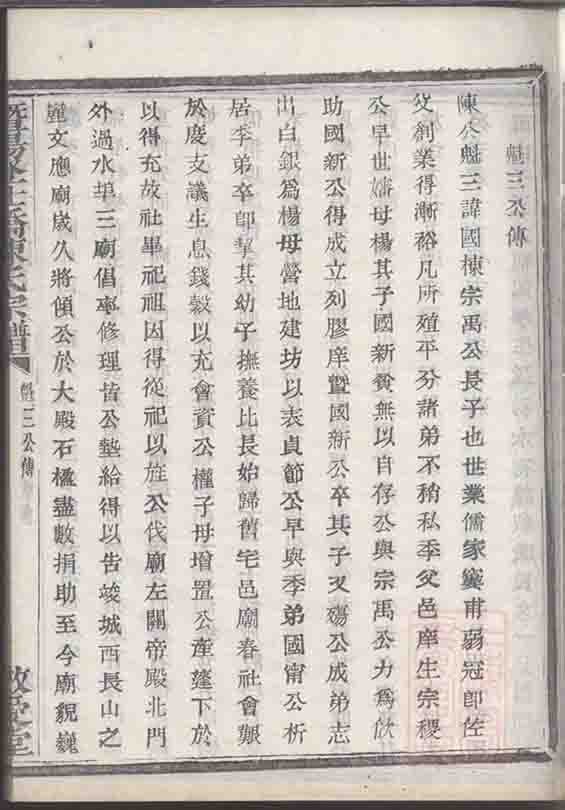 魁三公傳
陳公魁三諱國棟宗禹公長子也世業儒家寠甫弱冠卽佐
父創業得漸裕凡所殖平分諸弟不稍私季父邑庠生宗稷
公早世嬸母楊其子國新貧無以自存公與宗禹公力爲佽
助國新公得成立列膠庠曁國新公卒其子又殤公成弟志
出白銀爲楊母營地建坊以表貞節公早與季弟國甯公析
居季弟卒卽挈其幼子撫養比長始歸舊宅邑廟春社會艱
於度支議生息錢穀以充會資公權子母增置公產蓬下於
以得充故社畢祀祖因得從祀以旌公伐廟左關帝殿北門
外過水埠三廟倡率修理皆公墊給得以告竣城西長山之
麓文應廟歲久將傾公於大殿石楹盡數捐助至今廟貌巍
暨陽 橋陳氏宗譜
魁三公傳
敬愛堂